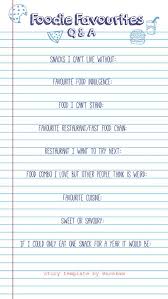 Foodie Favourites
Q & A
SNACKS I CAN'T LIVE WITHOUT:
FAVOURITE FOOD INDULGENCE:
FOOD I CAN'T STAND:
FAVOURITE RESTAURANT/FAST FOOD CHAIN:
RESTAURANT I WANT TO TRY NEXT:
FOOD COMBO I LOVE BUT OTHER PEOPLE THINK IS WEIRD:
FAVOURITE CUISINE:
SWEET OR SAVOURY:
IF I COULD ONLY EAT ONE SNACK FOR A YEAR IT WOULD BE:
story template by